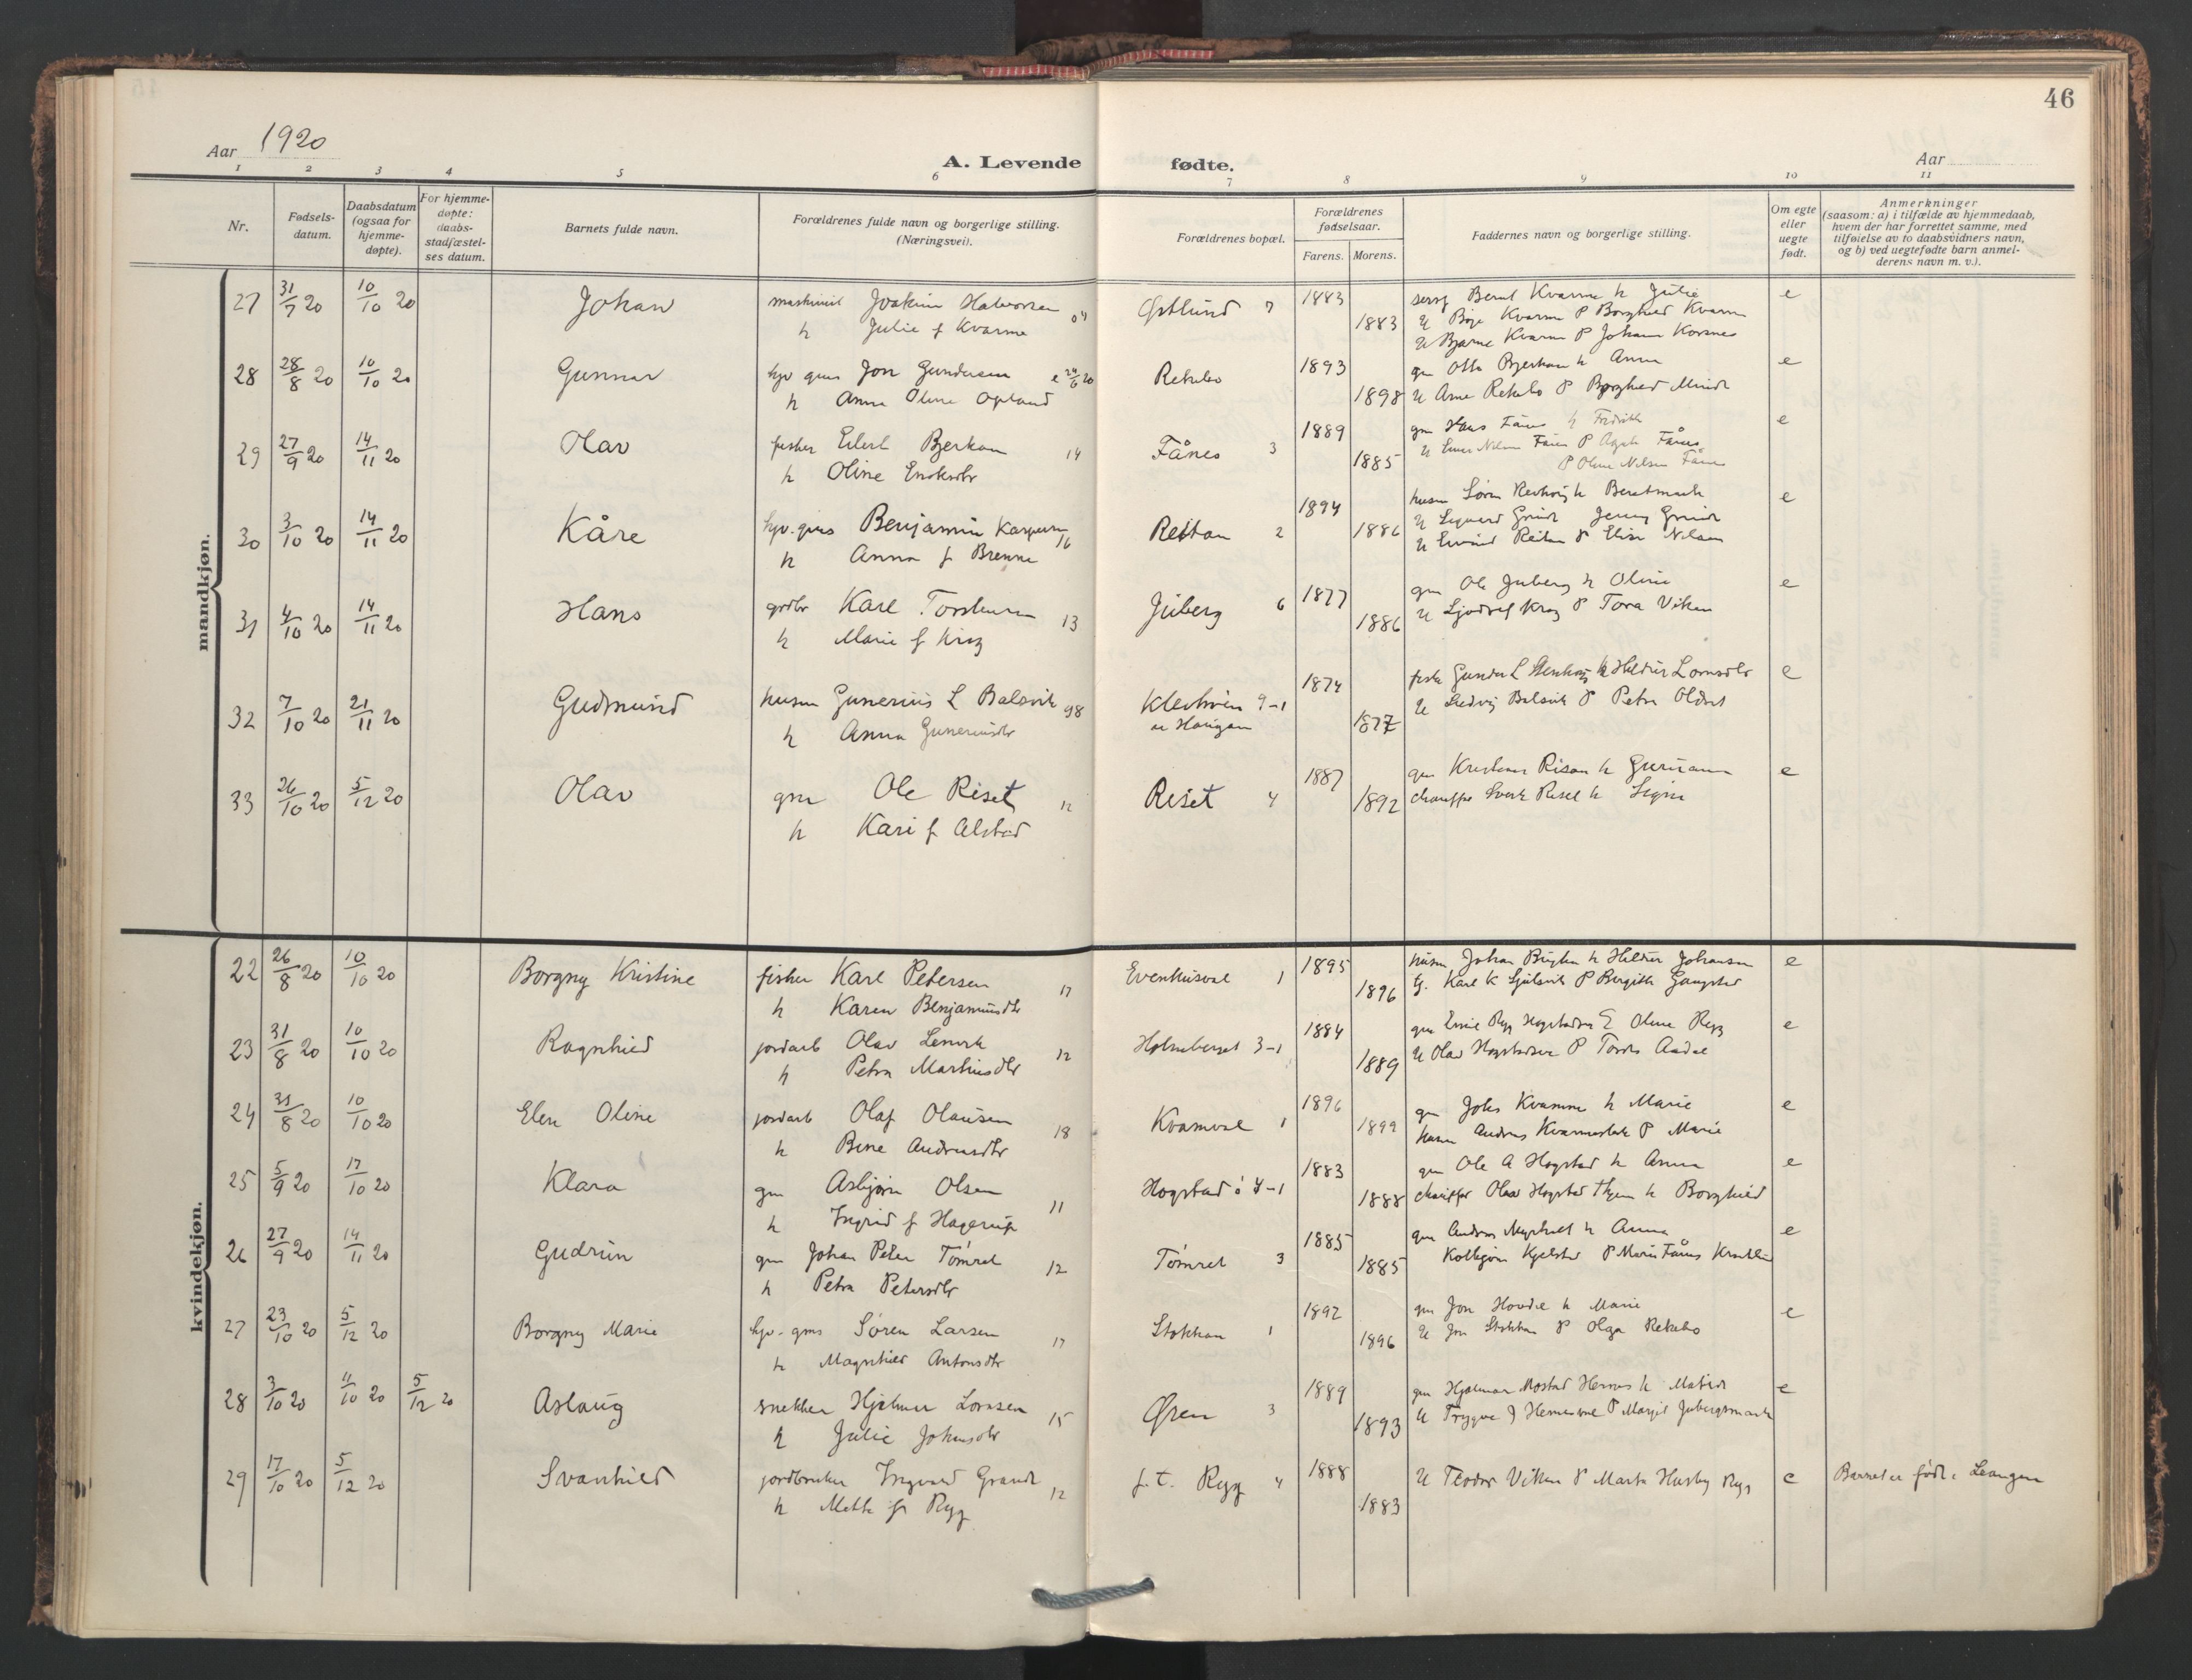 46
Aar 1920
A. Levende fødte.
Aar
1 2 3 4 5 6 7 8 9 10 11
Nr.
Fødsels-
datum.
Daabsdatum
(ogsaa for
hjemme-
døpte).
For hjemme-
døpte:
daabs-
stadfæstel-
ses datum.
Barnets fulde navn.
Forældrenes fulde navn og borgerlige stilling.
(Næringsvei).
Forældrenes bopæl.
Forældrenes
fødselsaar.
Farens. Morens.
Faddernes navn og borgerlige stilling.
Om egte
eller
uegte
født.
Anmerkninger
(saasom: a) i tilfælde av hjemmedaab,
hvem der har forrettet samme, med
tilføielse av to daabsvidners navn,
og b) ved uegtefødte barn anmel-
derens navn m. v.).
mandkjøn.
27 31/7 20 10/10 20 Johan maskinist Joakim Halvorsen 04 Østlund 7 1883 Bernt Kvarme h Julie e
h Julie f Kvarme 1883 U Borghild Kvarme
U Bjarne Kvarme P Johann Korsnes
28 28/8 20 10/10 20 Gunnar hjv gms Jon Gundersen e 24/6 20 Rekebo 1893 gm Otto Bjerkan h Anna e
h Anna Oline Opland 1898 U Arne Rekebo P Borghild
29 27/9 20 14/11 20 Olav fisker Eilert Bjerkan 14 Fånes 3 1889 gm Hans Fånes h Fredrikke e
h Oline Enoksdtr 1885 U Nilsen Fånes P Fånes
P Oline Nilsen Fånes
30 3/10 20 14/11 20 Kåre hjv. gms Benjamin Karpersen 16 Reitan 2 1894 husm Søren h Beretmarte e
h Anna f Brenne 1886 U Sigvard Jenny
U Reitan P Elise Nilsen
31 4/10 20 14/11 20 Hans grdbr Karl Torstensen 13 Juberg 6 1877 gm Ole Juberg h Oline e
h Marie f Krog 1886 U Krog P Tora Viken
32 7/10 20 21/11 20 Gudmund husm Gunerius L Balsvik 98 Klevhøen 9-1 1874 fisker Gunder L h Hilder e
h Anna Guneriusdtr Haugan 1877 U Ludvig Balsvik P Petra
33 26/10 20 5/12 20 Olav gm Ole Riset 12 Riset 4 1887 gm Risan h e
h Kari f Alstad 1892 chauffør Riset h Signe
kvindekjøn.
22 26/8 20 10/10 20 Borgny Kristine fisker Karl Petersen 17 Evenhusval 1 1895 husm Johan h Hilder Johansen e
h Karen Benjaminsdtr 1896 Karl K P Bergitte Gangstad
23 31/8 20 10/10 20 Ragnhild jordarb Olav 12 Holmberget 3-1 1884 gm Rygg Hogstadsen Oline Rygg e
h Petra Martinusdtr 1889 U Olav Hogstadsen P
24 31/8 20 10/10 20 Elen Oline jordarb Olaf Olausen 18 Kvamval 1 1896 gm Johs Kvamme h Marie e
h Bine Andreasdtr 1899 husm Andreas P Marie
25 5/9 20 17/10 20 Klara gm Asbjørn Olsen 11 Hogstad ø 4-1 1883 gm Ole A Hogstad h Anna e
h Ingrid f Hagerup 1888 chauffør Olav Hogstad h Borghild
26 27/9 20 14/11 20 Gudrun gm Johan Peter Tømret 12 Tømret 3 1885 gm Andreas h Anna e
h Petra Petersdtr 1885 Kolbjørn Kjelstad P Marie Fånes
27 23/10 20 5/12 20 Borgny Marie hjv-gms Søren Larsen 17 Stokkan 1 1892 gm Jon Hovdal h Marie e
h Magnhild Antonsdtr 1896 U Jon Stokkan P Olga Rekebo
28 3/10 20 11/10 20 5/12 20 Aslaug snekker Hjalmar Lornsen 15 Øren 3 1889 gm Hjalmar Mostad h e
h Julie Johansdtr 1893 U Trygve J P Margit Jubergsmark
29 17/10 20 5/12 20 Svanhild jordbruker Ingvard Grande 12 f. t. Rygg 4 1888 U Teodor Viken P Marta Husby Rygg e Barnet er født i Leangen
h Mette f Rygg 1883